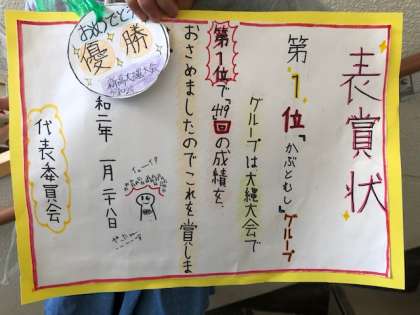 表賞状
第1位「かぶとむし」グループ
グループは大縄大会で
第1位で「419回の成績を、
おさめましたのでこれを賞しま
和二年 一月二十八日
代表委員会
おめでとう
優勝
大縄大会